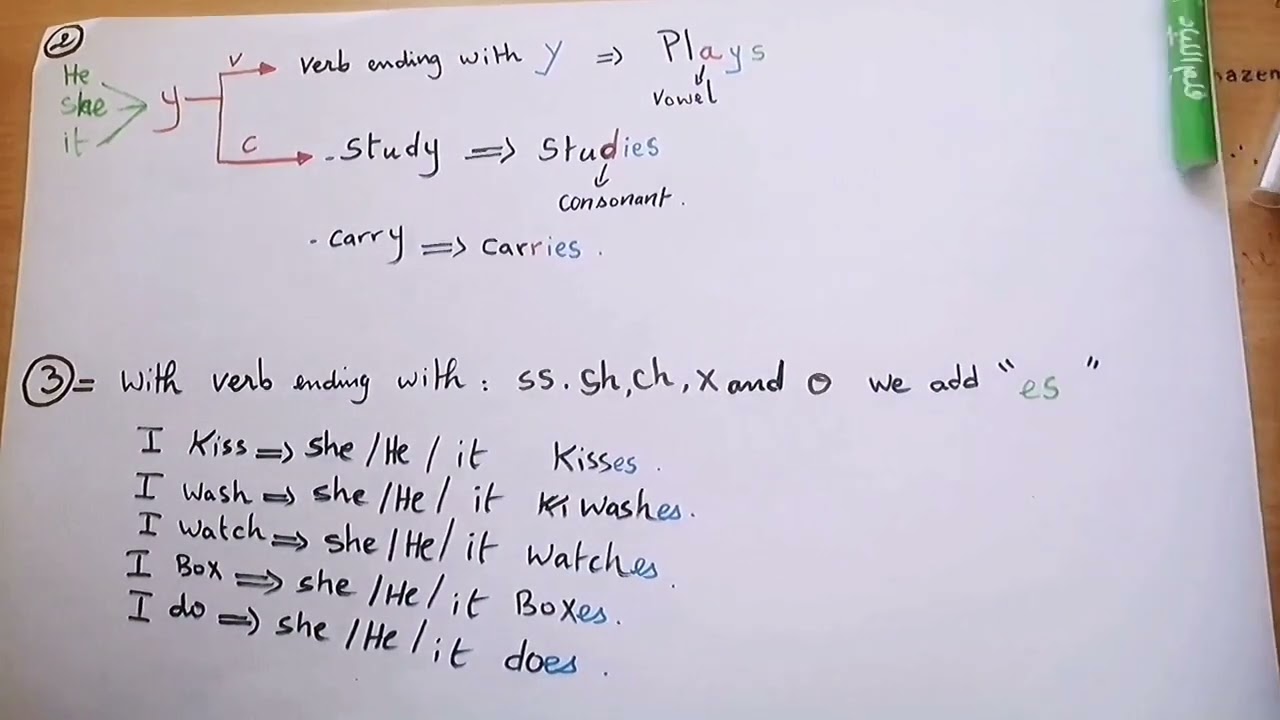 2
He
she
it
y
v
verb ending with y ⇒ Plays
vowel
c
- study ⇒ studies
consonant.
- carry ⇒ carries.
3 = with verb ending with: ss. sh, ch, x and o we add "es"
I Kiss ⇒ she / He / it Kisses.
I wash ⇒ she / He / it washes.
I watch ⇒ she / He / it watches.
I Box ⇒ she / He / it Boxes.
I do ⇒ she / He / it does.